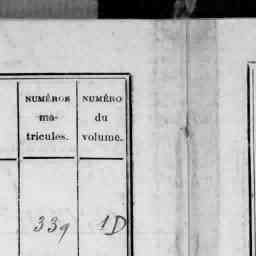 NUMÉROS
ma-
tricules.
NUMÉRO
du
volume.
339
1D